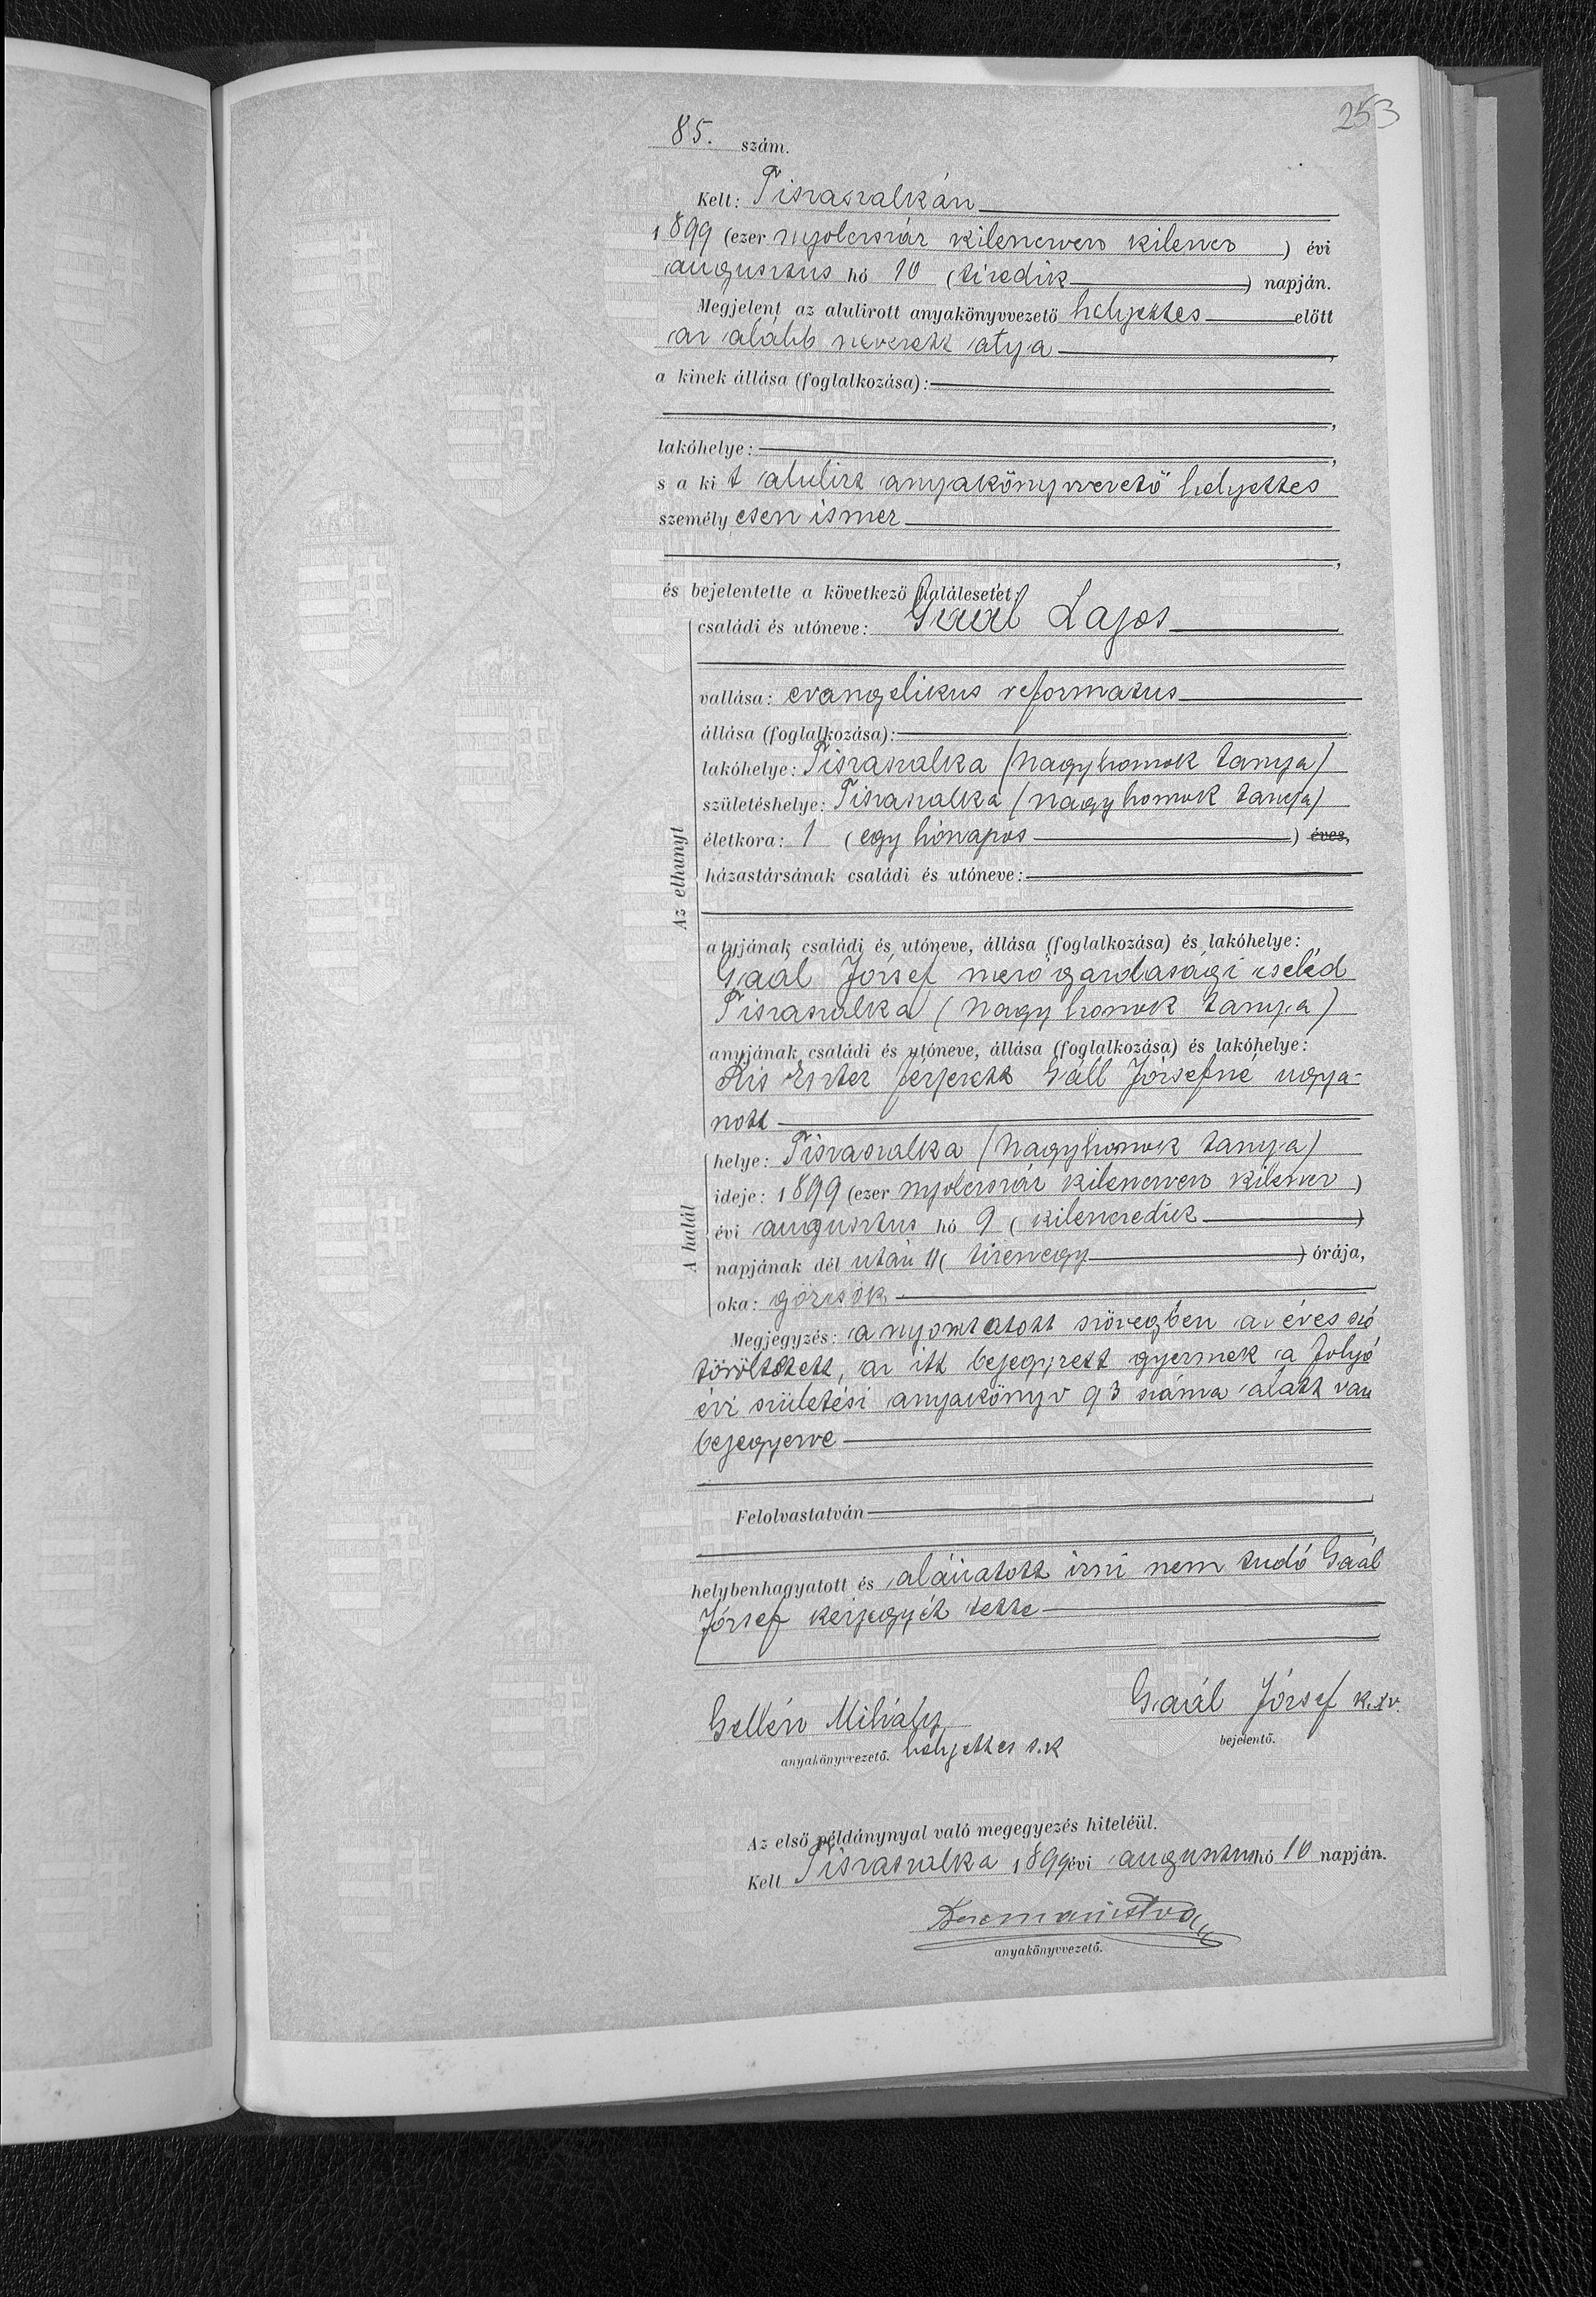 253
85. szám.
Kelt: Tiszaszalkán
1899 (ezer nyolczszáz kilenczven kilencz) évi
augusztus hó 10 (tizedik) napján.
Megjelent az alulirott anyakönyvvezető helyettes előtt
az alább nevezett atya,
a kinek állása (foglalkozása):
lakóhelye:
s a ki t alulirt anyakönyvvezető helyettes
személy esen ismer
és bejelentette a következő halálesetet:
családi és utóneve: Gaál Lajos
vallása: evangelikus reformatus
állása (foglalkozása):
lakóhelye: Tiszaszalka (Nagyhomok tanya)
születéshelye: Tiszaszalka (Nagyhomok tanya)
életkora: 1 (egy hónapos) éves,
házastársának családi és utóneve:
Az elhunyt
atyjának családi és utóneve, állása (foglalkozása) és lakóhelye:
Gaál József mező gazdasági cseléd
Tiszaszalka (Nagyhomok tanya)
anyjának családi és utóneve, állása (foglalkozása) és lakóhelye:
Kis Eszter férjezett Gáll Józsefné ugya-
nott
helye: Tiszaszalka (Nagyhomok tanya)
ideje: 1899 (ezer nyolczszáz kilenczven kilencz)
évi augusztus hó 9 (kilenczedik)
A halál
napjának dél után 11 (tizenegy) órája,
oka: görcsök
Megjegyzés: a nyomtatott szövegben az éves szó
töröltetett, az itt bejegyzett gyermek a folyó
évi születési anyakönyv 93 száma alatt van
bejegyezve
Felolvastatván
helybenhagyatott és aláiratott irni nem tudó Gaál
József kézjegyét tette
Gellén Mihály Gaál József k.xv.
anyakönyvvezető. helyettes s.k bejelentő.
Az első példánynyal való megegyezés hiteléül.
Kelt Tiszaszalka 1899 évi augusztus hó 10 napján.
anyakönyvvezető.